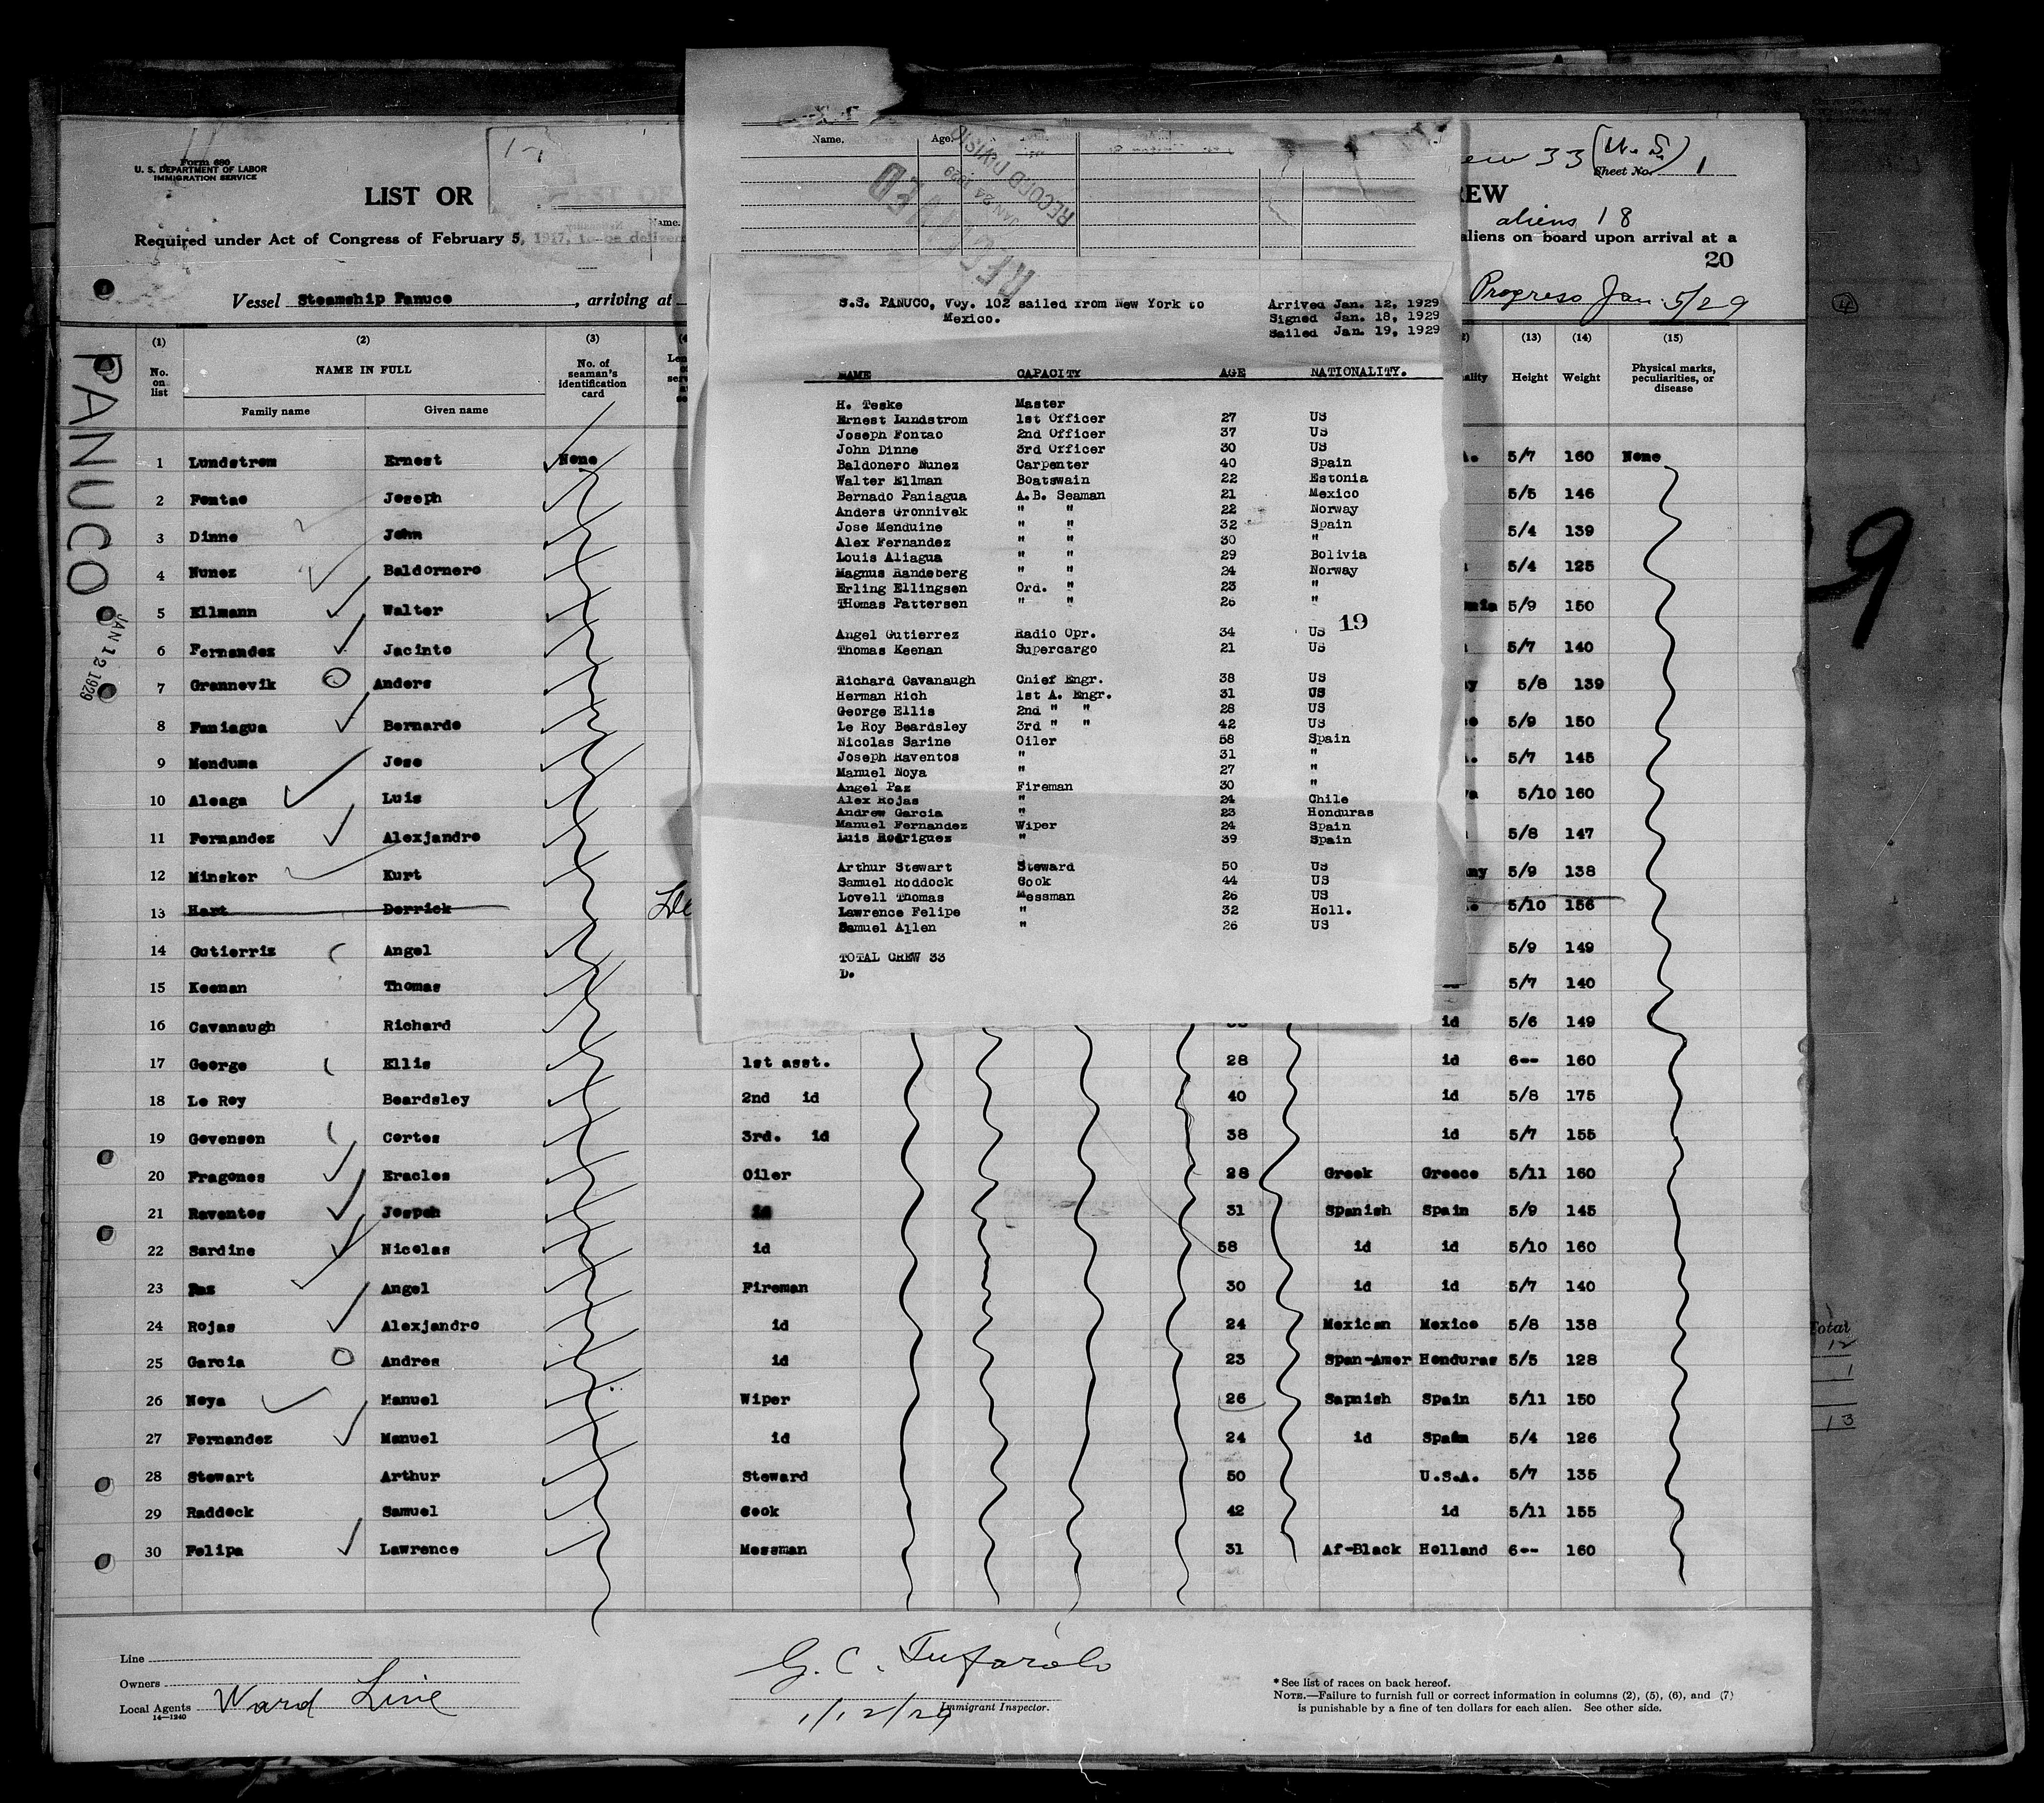 Form 680
U. S. DEPARTMENT OF LABOR
IMMIGRATION SERVICE
LIST OR
Required under Act of Congress of February 5, 1917, to be deliver
Vessel Steamship Panuco, arriving at
Name. Age.
RECEIVED
JAN 24 1929
RECORD DIVISION
33 (U. S.)
Sheet No. 1
EW
aliens 18
aliens on board upon arrival at a
20
Progreso Jan. 5/29
PANUCO
JAN 12 1929
S.S. PANUCO, Voy. 102 sailed from New York to Mexico.
Arrived Jan. 12, 1929
Signed Jan. 18, 1929
Sailed Jan. 19, 1929
NAME CAPACITY AGE NATIONALITY.
H. Teske Master
Ernest Lundstrom 1st Officer 27 US
Joseph Fontao 2nd Officer 37 US
John Dinne 3rd Officer 30 US
Baldonero Nunez Carpenter 40 Spain
Walter Ellman Boatswain 22 Estonia
Bernado Paniagua A.B. Seaman 21 Mexico
Anders Gronnivek " " 22 Norway
Jose Menduine " " 32 Spain
Alex Fernandez " " 30 "
Louis Aliagua " " 29 Bolivia
Magnus Randeberg " " 24 Norway
Erling Ellingsen Ord. " 23 "
THomas Pattersen " " 26 "
19
Angel Gutierrez Radio Opr. 34 US
Thomas Keenan Supercargo 21 US
Richard Cavanaugh Chief Engr. 38 US
Herman Rich 1st A. Engr. 31 US
George Ellis 2nd " " 28 US
Le Roy Beardsley 3rd " " 42 US
Nicolas Sarine Oiler 58 Spain
Joseph Raventos " 31 "
Manuel Noya " 27 "
Angel Paz Fireman 30 "
Alex Rojas " 24 Chile
Andrew Garcia " 23 Honduras
Manuel Fernandez Wiper 24 Spain
Luis Rodriguez " 39 Spain
Arthur Stewart Steward 50 US
Samuel Roddock Cook 44 US
Lovell Thomas Messman 26 US
Lawrence Felipe " 32 Holl.
Samuel Allen " 26 US
TOTAL CREW 33
D.
(1) (2) (3) (13) (14) (15)
No. on list NAME IN FULL No. of seaman's identification card Height Weight Physical marks, peculiarities, or disease
Family name Given name
1 Lundstrom Ernest None 5/7 160 None
2 Fontao Joseph 5/5 146
3 Dinne John 5/4 139
4 Nunez Baldornero 5/4 125
5 Ellmann Walter 5/9 150
6 Fernandez Jacinto 5/7 140
7 Grennevik Anders 5/8 139
8 Paniagua Bernardo 5/9 150
9 Menduma Jose 5/7 145
10 Aleaga Luis 5/10 160
11 Fernandez Alexjandro 5/8 147
12 Minsker Kurt 5/9 138
13 Hart Derrick 5/10 156
14 Gutierriz Angel 5/9 149
15 Keenan Thomas 5/7 140
16 Cavanaugh Richard id 5/6 149
17 George Ellis 1st asst. 28 id 6-- 160
18 Le Roy Beardsley 2nd id 40 id 5/8 175
19 Govensen Cortes 3rd. id 38 id 5/7 155
20 Fragones Eracles Oiler 28 Greek Greece 5/11 160
21 Raventos Jospeh id 31 Spanish Spain 5/9 145
22 Sardine Nicolas id 58 id id 5/10 160
23 Paz Angel Fireman 30 id id 5/7 140
24 Rojas Alexjandro id 24 Mexican Mexico 5/8 138
25 Garcia Andres id 23 Span-Amer Honduras 5/5 128
26 Noya Manuel Wiper 26 Sapnish Spain 5/11 150
27 Fernandez Manuel id 24 id Spain 5/4 126
28 Stewart Arthur Steward 50 U.S.A. 5/7 135
29 Raddock Samuel Cook 42 id 5/11 155
30 Felipa Lawrence Messman 31 Af-Black Holland 6-- 160
Total
12
1
13
Line
Owners
Local Agents Ward Line
14—1240
1/12/29 Immigrant Inspector.
* See list of races on back hereof.
NOTE.—Failure to furnish full or correct information in columns (2), (5), (6), and (7)
is punishable by a fine of ten dollars for each alien. See other side.